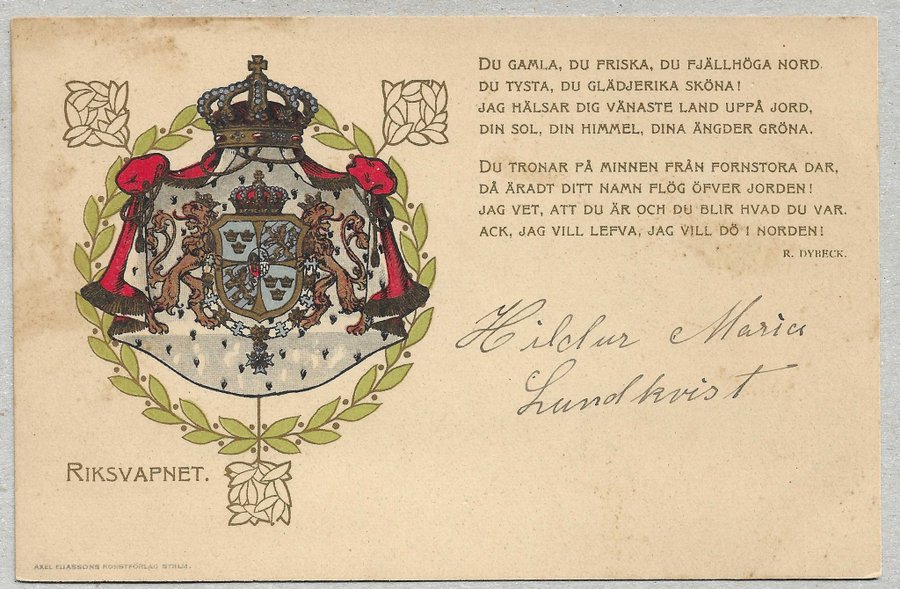 DU GAMLA, DU FRISKA, DU FJÄLLHÖGA NORD,
DU TYSTA, DU GLÄDJERIKA SKÖNA!
JAG HÄLSAR DIG VÄNASTE LAND UPPÅ JORD,
DIN SOL, DIN HIMMEL, DINA ÄNGDER GRÖNA.
DU TRONAR PÅ MINNEN FRÅN FORNSTORA DAR,
DÅ ÄRADT DITT NAMN FLÖG ÖFVER JORDEN!
JAG VET, ATT DU ÄR OCH DU BLIR HVAD DU VAR.
ACK, JAG VILL LEFVA, JAG VILL DÖ I NORDEN!
R. DYBECK.
Hildur Maria
Lundkvist
RIKSVAPNET.
AXEL ELIASSONS KONSTFÖRLAG STHLM.